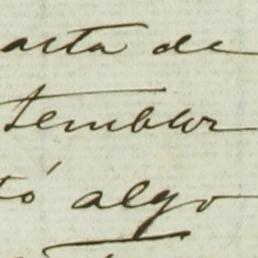 arta de
tembler
tó algo